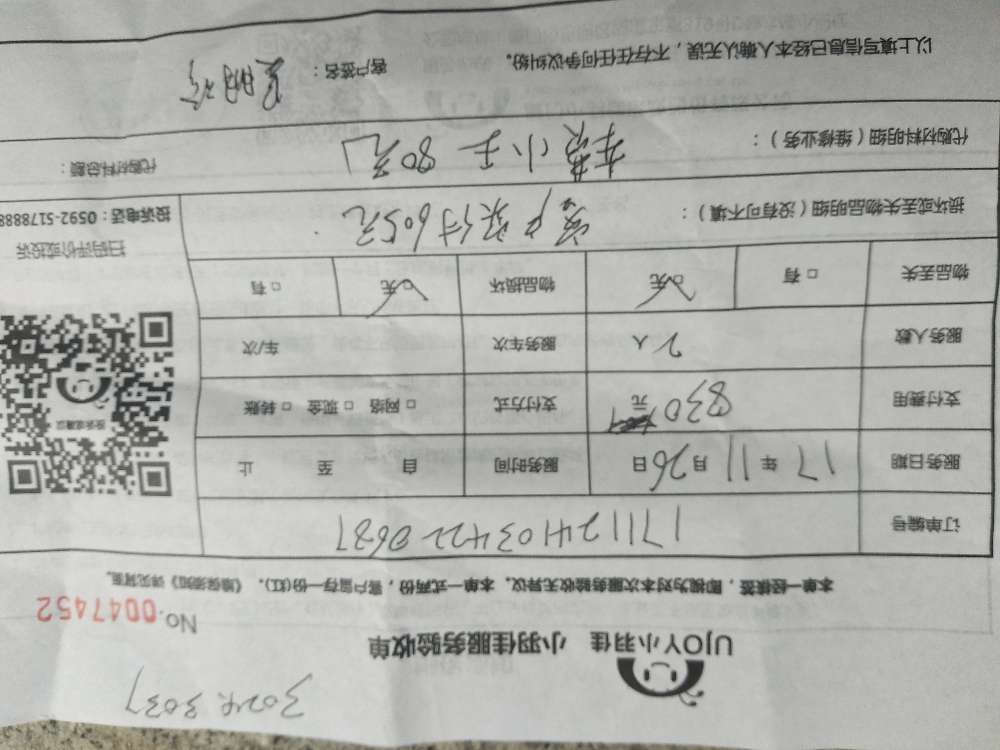 3024 3037
UJOY小羽佳 小羽佳服务验收单
No.0047452
本单一经续签,即视为对本次服务验收无异议。本单一式两份,客户留存一份(红)。《维保须知》详见背面。
订单编号 171124103422 0687
服务日期 17年11月26日 服务时间 自 至 止
支付费用 830元 支付方式 □ 网络 □ 现金 □ 转账
服务人数 2人 服务车次 车/次
物品丢失 □ 有 □ 无 物品损坏 □ 无 □ 有
扫码评价或投诉
投诉电话:0592-5178888
损坏或丢失物品明细(没有可不填): 客户实付605元
代购材料明细(维修业务): 车费小王80元
代购材料总额:
以上填写信息已经本人确认无误,不存在任何争议纠纷。 客户签名: